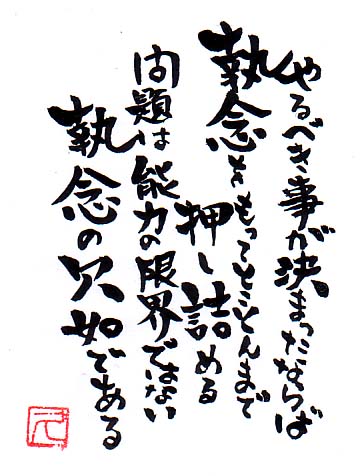 やるべき事が決まったならば
執念をもってとことんまで
押し詰める
問題は能力の限界ではない
執念の欠如である